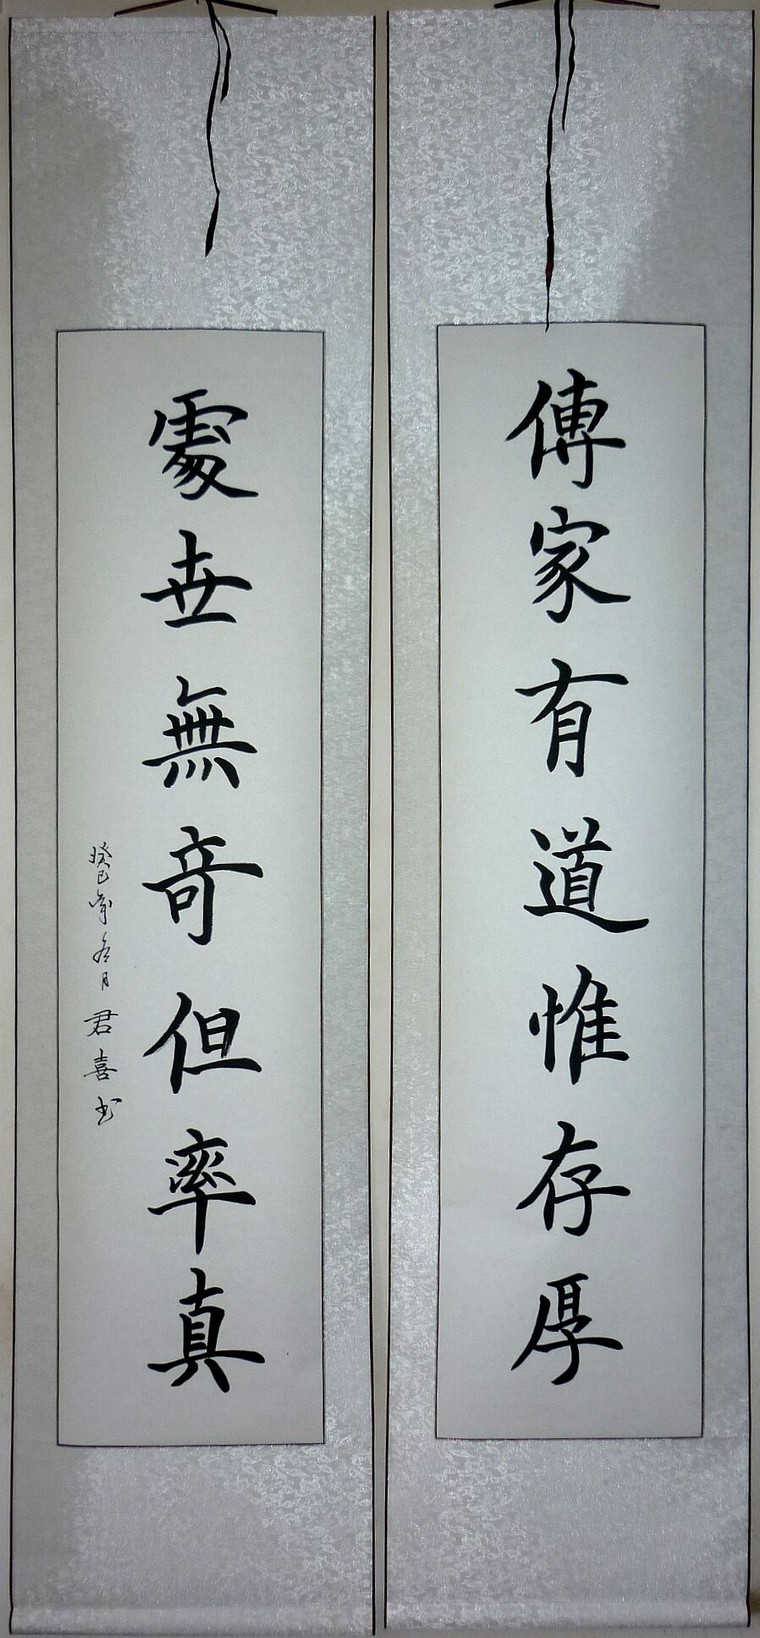 傳家有道惟存厚
處世無奇但率真
癸巳年冬月
君喜书